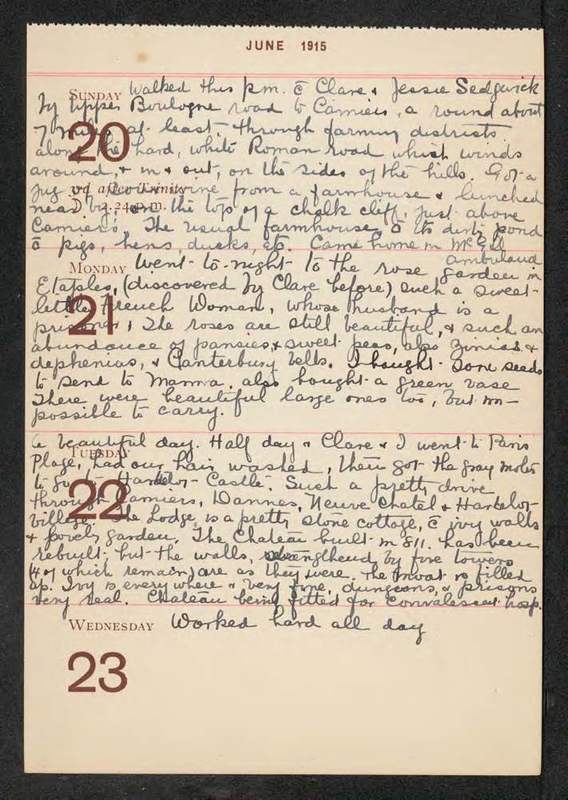 JUNE 1915
SUNDAY Walked this p.m. c̄ Clare & Jessie Sedgwick
by Upper Boulogne road to Camiers, a round about
7 miles at least through farming districts
20
along the hard, white Roman road which winds
around, & in & out, on the sides of the hills. Got a
jug of wine from a farmhouse & lunched
2nd after Trinity
near by, on the top of a chalk cliff, just above
D 2.24 p.m.
Camiers. The usual farmhouse c̄ its dirty pond
c̄ pigs, hens, ducks, etc. Came home in McGill
ambulance
MONDAY Went to-night to the rose garden in
Etaples, (discovered by Clare before) such a sweet
little French Woman, whose husband is a
21
prisoner. The roses are still beautiful, & such an
abundance of pansies, & sweet peas, also Zinias &
delphenias, & Canterbury bells. I bought some seeds
to send to Mamma. also bought a green vase
There were beautiful large ones too, but im-
possible to carry.
A beautiful day. Half day & Clare & I went to Paris
TUESDAY
Plage, had our hair washed, then got the gray motor
to go Hardelot Castle. Such a pretty drive
22
through Camiers, Dannes, Neuve Chatel & Hardelot
village. The Lodge is a pretty stone cottage, c̄ ivy walls
& porch, garden. The Chateau built in 811. has been
rebuilt but the walls, strengthend by five towers
(4 of which remain) are as they were. The moat is filled
up. Ivy is everywhere & very fine, dungeons, & prisons
very real. Chateau being fitted for Convalescent hosp.
WEDNESDAY Worked hard all day
23